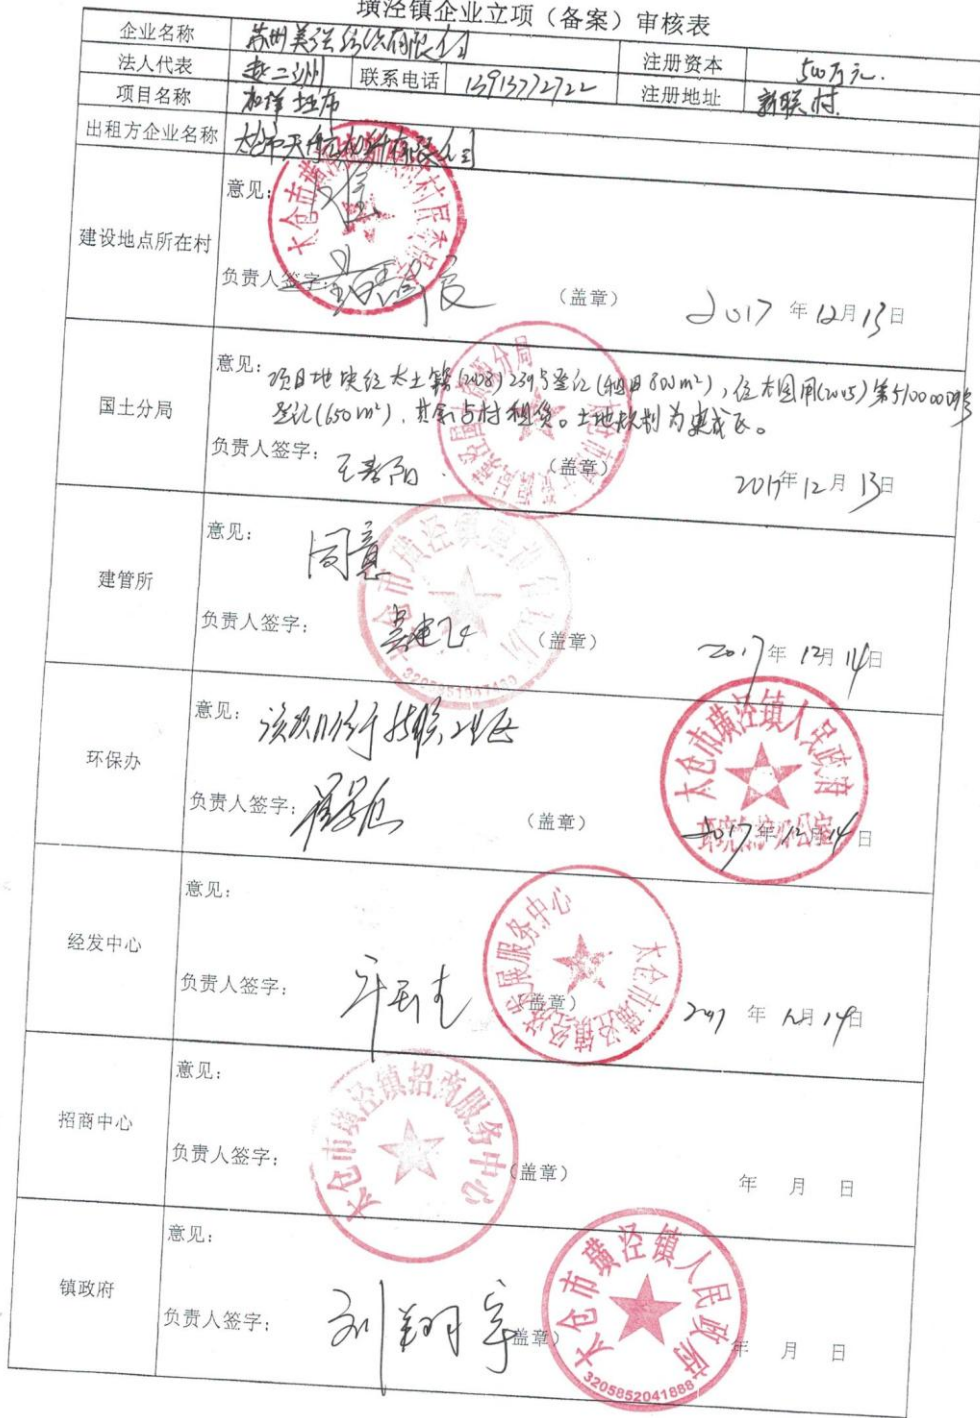 璜泾镇企业立项（备案）审核表
企业名称 苏州美强纺织有限公司 注册资本 500万元.
法人代表 赵二训 联系电话 13913772722 注册地址 新联村
项目名称 坯布
出租方企业名称 太仓市天 有限公司
建设地点所在村 意见： 同意
负责人签字： （盖章） 2017年12月13日
国土分局 意见： 项目地块经太土籍(2008)239号登记(租用800m²)，位太国用(2005)第510000号
登记(650m²)，其余与村租赁。土地规划为建成区。
负责人签字： （盖章） 2017年12月13日
太仓市国土资源局
建管所 意见： 同意
负责人签字： 吴建飞 （盖章） 2017年12月14日
环保办 意见： 该项目位于新联工业区
负责人签字： （盖章） 2017年12月14日
太仓市璜泾镇人民政府
环境保护办公室
经发中心 意见：
负责人签字： （盖章） 2017年12月14日
太仓市璜泾镇经济发展服务中心
招商中心 意见：
负责人签字： （盖章） 年 月 日
太仓市璜泾镇招商服务中心
镇政府 意见：
负责人签字： 刘翔宇 （盖章） 年 月 日
太仓市璜泾镇人民政府
3205852041888